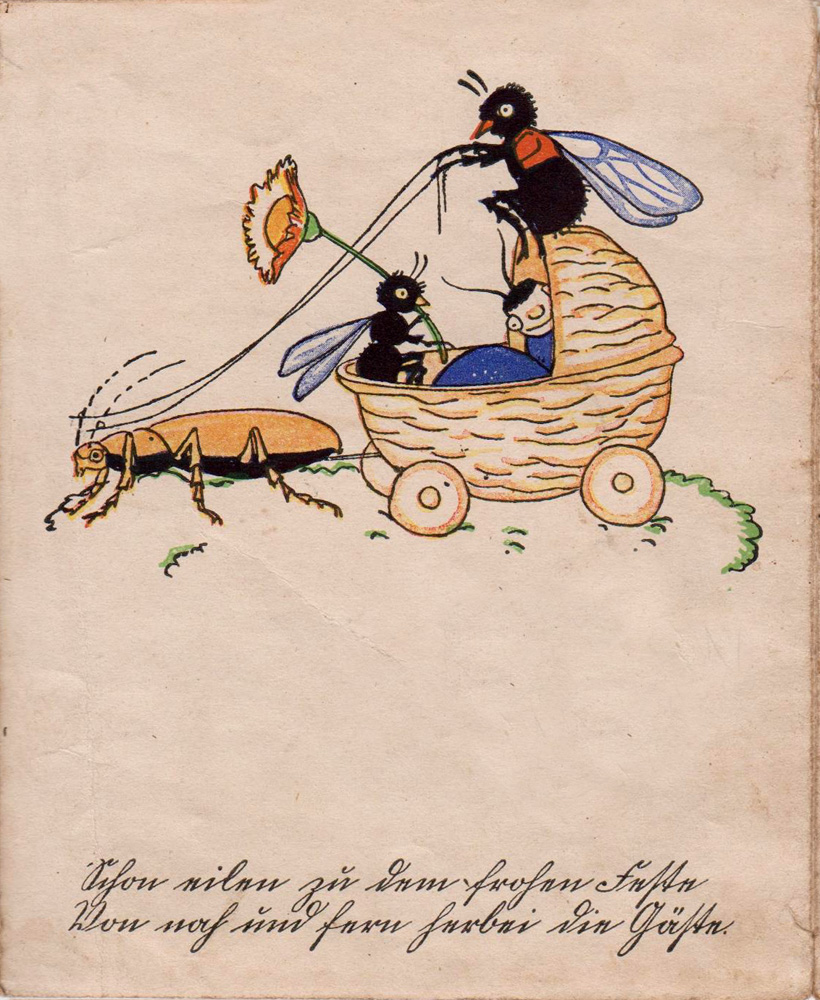 Schon eilen zu dem frohen Feste
Von nah und fern herbei die Gäste.